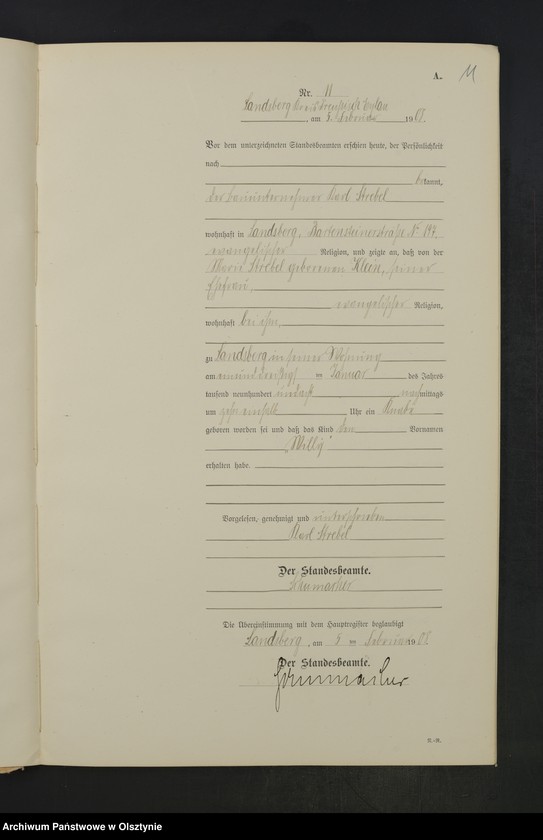 A.
11
Nr. 11
Landsberg Kreis Preußisch Eylau
, am 5. Februar 1908.
Vor dem unterzeichneten Standesbeamten erschien heute, der Persönlichkeit
nach
bekannt,
der Bauunternehmer Karl Strebel
wohnhaft in Landsberg, Bartensteinerstraße No 194,
evangelischer Religion, und zeigte an, daß von der
Strebel geborenen Klein, seiner
Ehefrau,
evangelischer Religion,
wohnhaft bei ihm,
zu Landsberg in seiner Wohnung
am einunddreißigsten Januar des Jahres
tausend neunhundert und acht nachmittags
um zehn einhalb Uhr ein Knabe
geboren worden sei und daß das Kind den Vornamen
„Willy"
erhalten habe.
Vorgelesen, genehmigt und unterschrieben
Karl Strebel
Der Standesbeamte.
Schumacher
Die Übereinstimmung mit dem Hauptregister beglaubigt
Landsberg, am 5 ten Februar 1908
Der Standesbeamte.
Schumacher
R.-R.
Archiwum Państwowe w Olsztynie